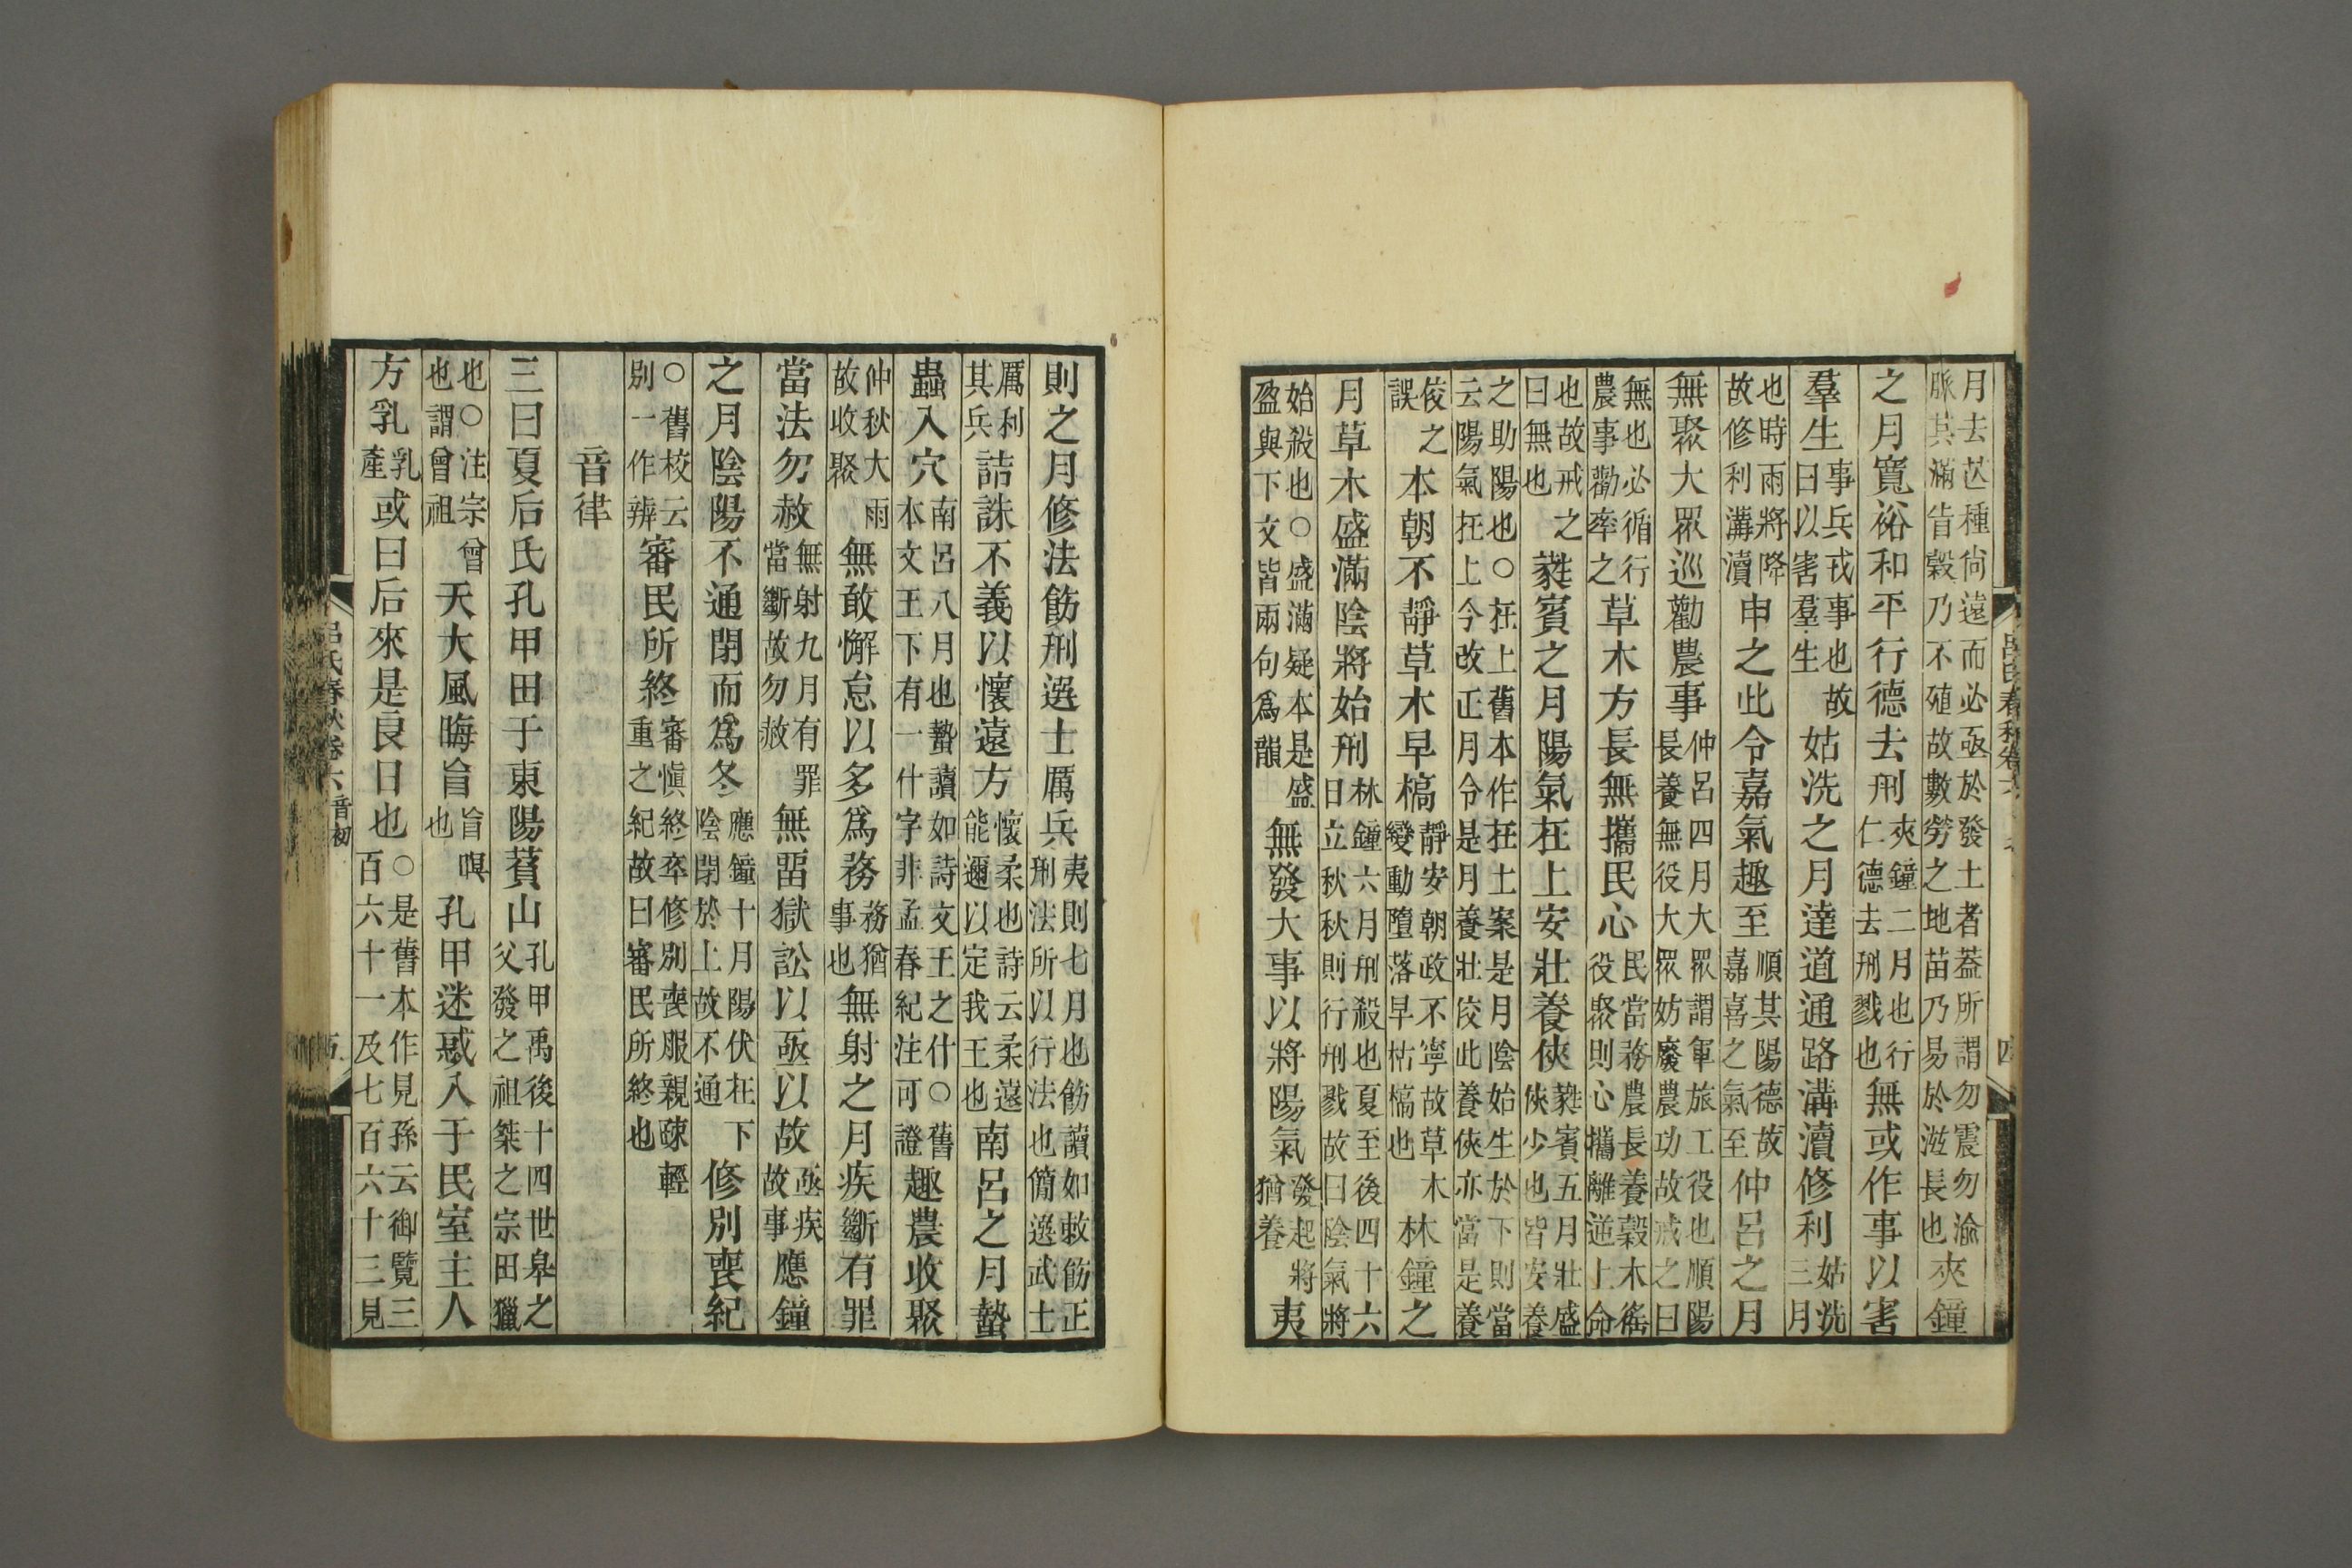 月去芒種尙遠而必亟於發土者葢所謂勿震勿渝脈其滿眚穀乃不殖故數勞之地苗乃易於滋長也夾鐘
之月寬裕和平行德去刑夾鐘二月也行仁德去刑戮也無或作事以害
羣生事兵戎事也故曰以害羣生姑洗之月達道通路溝瀆修利姑洗三月
也時雨將降故修利溝瀆申之此令嘉氣趣至順其陽德故嘉喜之氣至仲呂之月
無聚大眾巡勸農事仲呂四月大眾謂軍旅工役也順陽長養無役大眾妨廢農功故戒之曰
無也必循行農事勸率之草木方長無攜民心民當務農長養穀木徭役聚則心攜離逆上命
也故戒之曰無也蕤賓之月陽氣在上安壯養俠蕤賓五月壯盛俠少也皆安養
之助陽也○在上舊本作在土案是月陰始生於下則當云陽氣在上今改正月令是月養壯佼此養俠亦當是養
佼之誤本朝不靜草木早槁靜安朝政不寧故草木變動墮落早枯槁也林鐘之
月草木盛滿陰將始刑林鐘六月刑殺也夏至後四十六日立秋秋則行刑戮故曰陰氣將
始殺也○盛滿疑本是盛盈與下文皆兩句爲韻無發大事以將陽氣發起將猶養夷
呂氏春秋卷六 四
則之月修法飭刑選士厲兵夷則七月也飭讀如敕飭正刑法所以行法也簡選武士
厲利其兵詰誅不義以懷遠方懷柔也詩云柔遠能邇以定我王也南呂之月蟄
蟲入穴南呂八月也蟄讀如詩文王之什○舊本文王下有一什字非孟春紀注可證趣農收聚
仲秋大雨故收聚無敢懈怠以多爲務務猶事也無射之月疾斷有罪
當法勿赦無射九月有罪當斷故勿赦無畱獄訟以亟以故亟疾故事應鐘
之月陰陽不通閉而爲冬應鐘十月陽伏在下陰閉於上故不通修別喪紀
○舊校云別一作辨審民所終審愼終卒修別喪服親疎輕重之紀故曰審民所終也
音律
三曰夏后氏孔甲田于東陽萯山孔甲禹後十四世皋之父發之祖桀之宗田獵
也○注宗曾也謂曾祖天大風晦盲盲暝也孔甲迷惑入于民室主人
方乳乳產或曰后來是良日也○是舊本作見孫云御覽三百六十一及七百六十三見
呂氏春秋卷六 音初 五